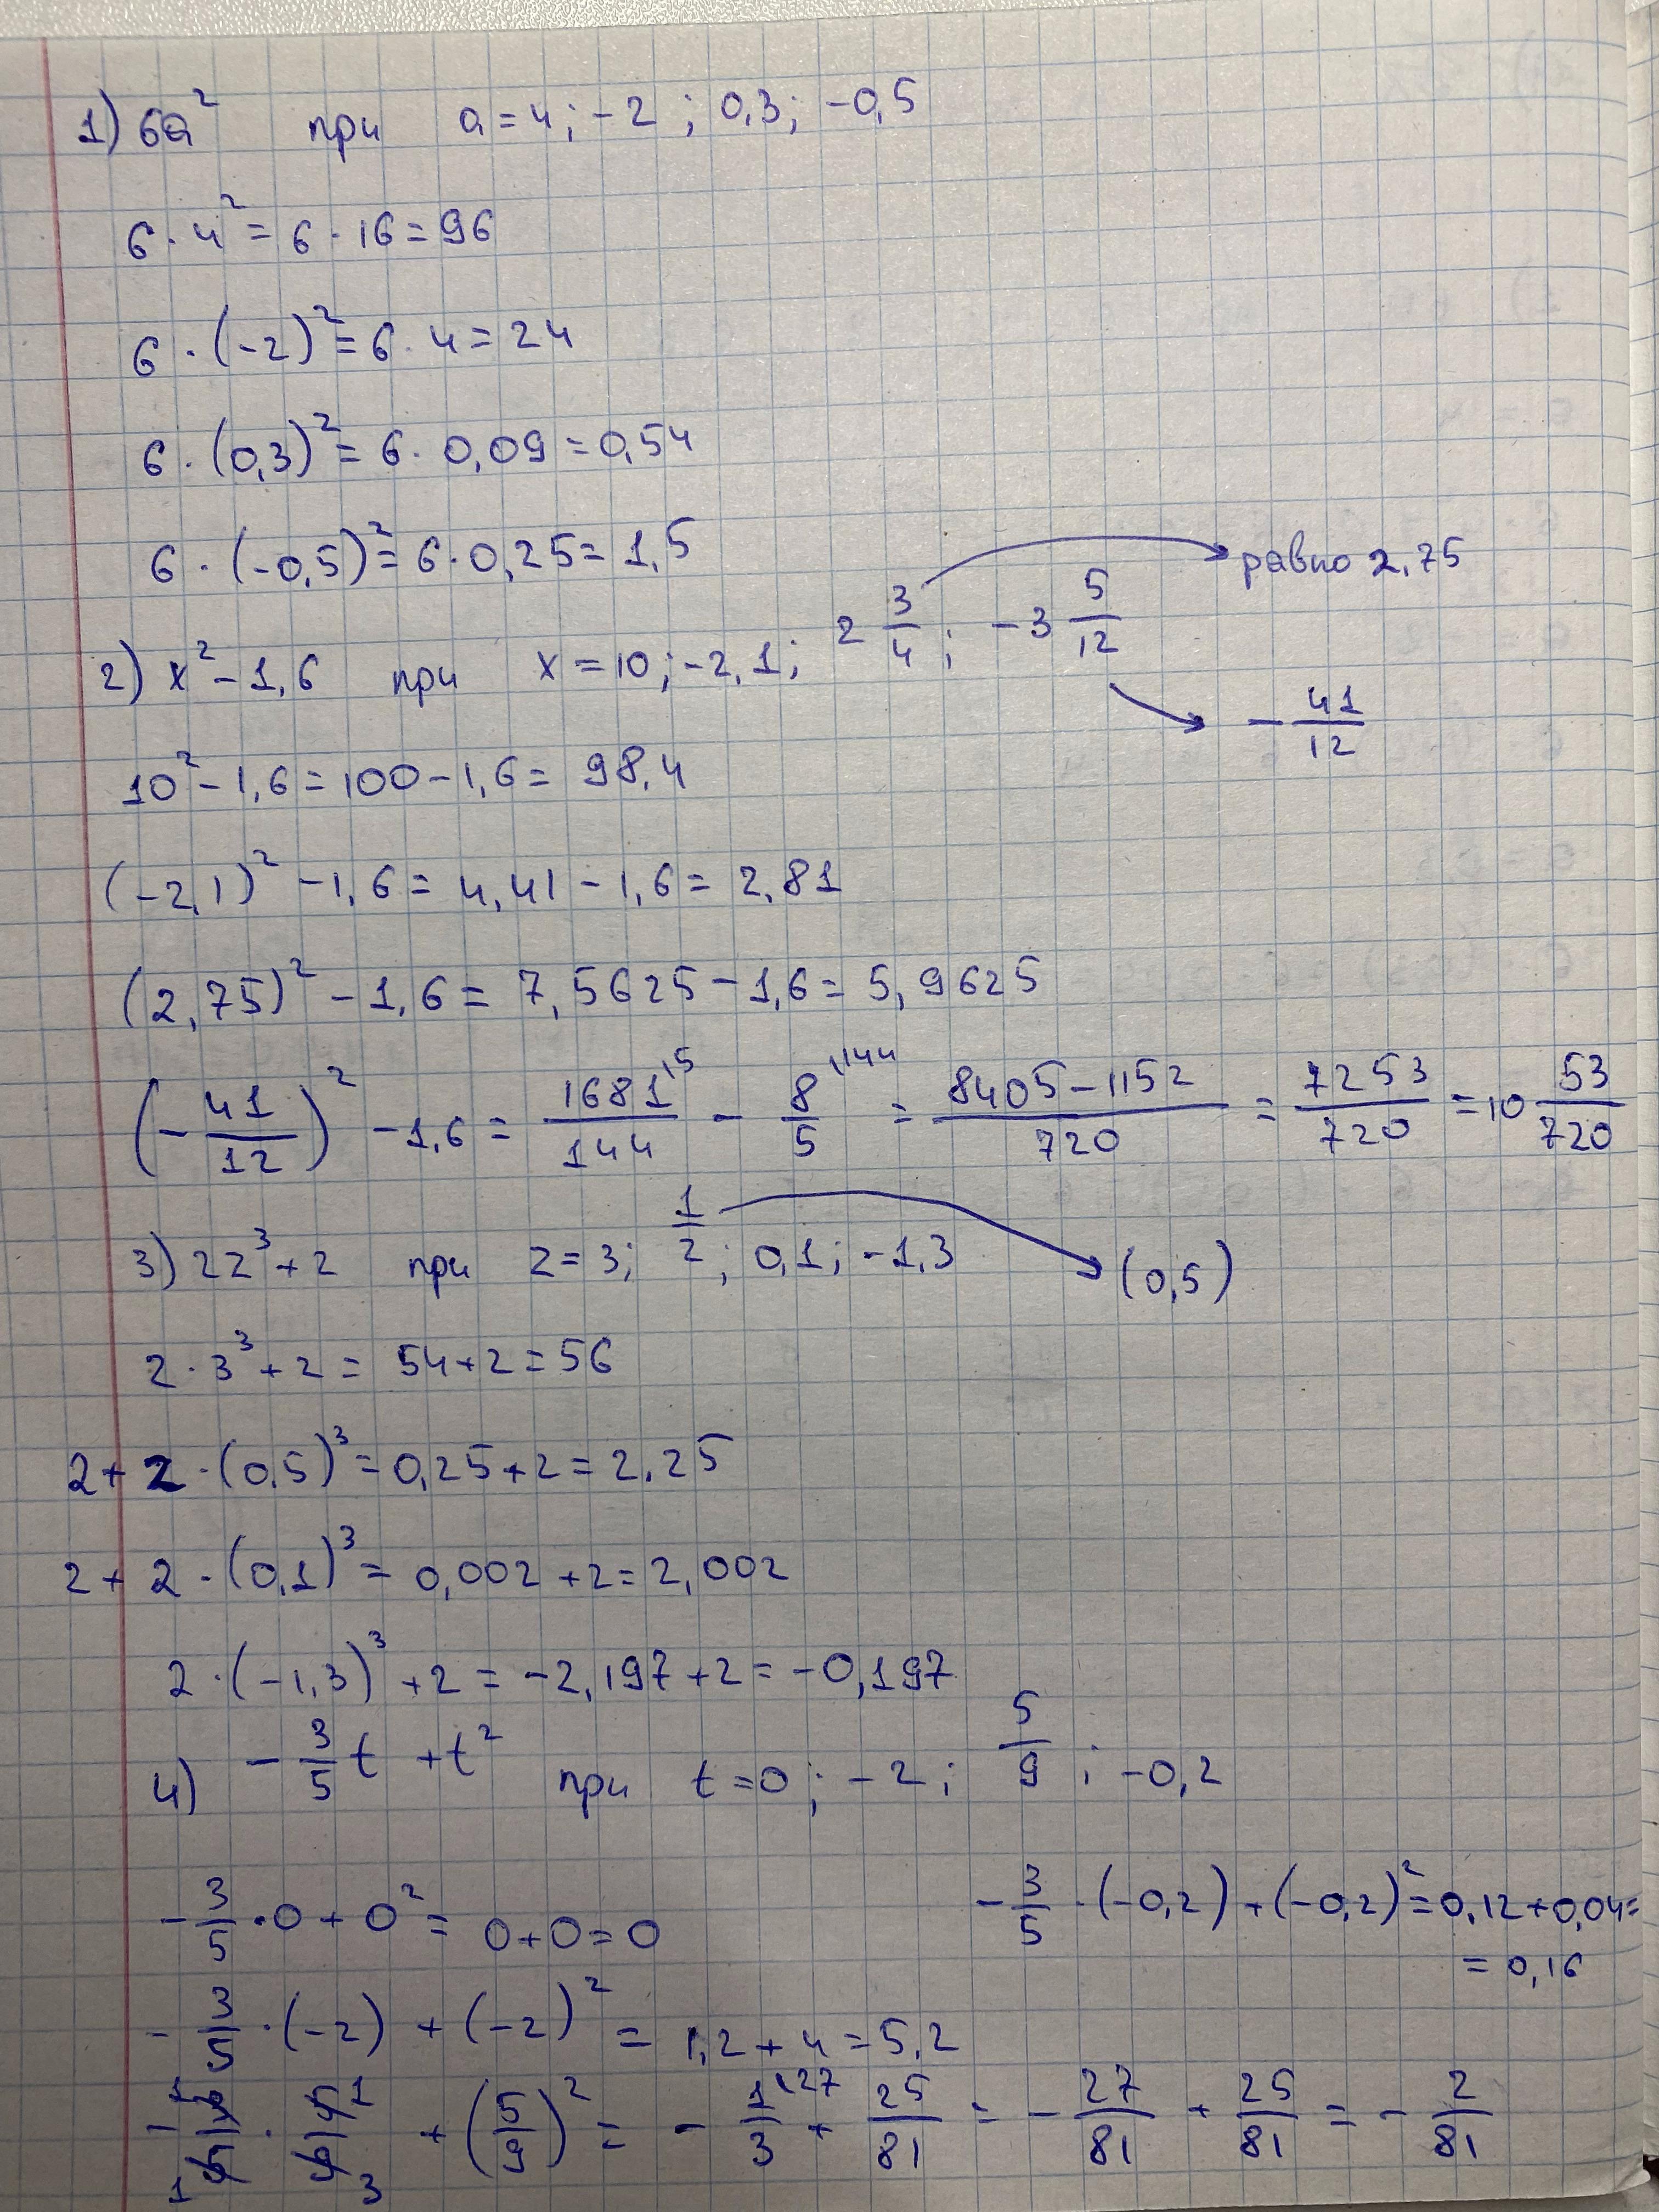 1) 6a² при a = 4; -2; 0,3; -0,5
6 · 4² = 6 · 16 = 96
6 · (-2)² = 6 · 4 = 24
6 · (0,3)² = 6 · 0,09 = 0,54
6 · (-0,5)² = 6 · 0,25 = 1,5
равно 2,75
2) x² - 1,6 при x = 10; -2,1; 2 3/4; -3 5/12
- 41/12
10² - 1,6 = 100 - 1,6 = 98,4
(-2,1)² - 1,6 = 4,41 - 1,6 = 2,81
(2,75)² - 1,6 = 7,5625 - 1,6 = 5,9625
(- 41/12)² - 1,6 = 1681/144 \5 - 8/5 \144 = 8405-1152/720 = 7253/720 = 10 53/720
3) 2z³ + 2 при z = 3; 1/2; 0,1; -1,3 (0,5)
2 · 3³ + 2 = 54 + 2 = 56
2 + 2 · (0,5)³ = 0,25 + 2 = 2,25
2 + 2 · (0,1)³ = 0,002 + 2 = 2,002
2 · (-1,3)³ + 2 = -2,197 + 2 = -0,197
4) - 3/5 t + t² при t = 0; -2; 5/9; -0,2
- 3/5 · 0 + 0² = 0 + 0 = 0
- 3/5 · (-2) + (-2)² = 1,2 + 4 = 5,2
- 3/5 · 5/9 + (5/9)² = - 1/3 \27 + 25/81 = - 27/81 + 25/81 = - 2/81
- 3/5 · (-0,2) + (-0,2)² = 0,12 + 0,04 =
= 0,16